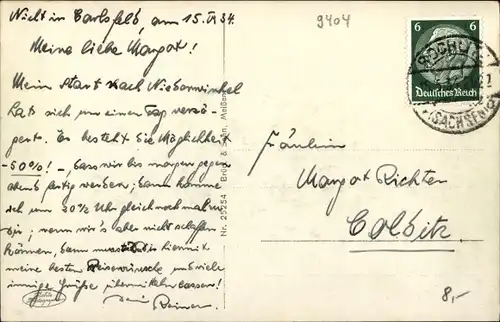 Nicht in Carlsfeld, am 15.IX 34.
Meine liebe Margot!
Mein Start nach Niederwinkel
hat sich um einen Tag verzö-
gert. Es besteht die Möglichkeit
-50%! - , dass wir bis morgen gegen
abend fertig werden; dann komme
ich um 20¾ Uhr gleich nochmal
; wenn wir's aber nicht schaffen
können, dann musst Du hiermit
meine besten Reisewünsche und viele
innige Grüße übermitteln lassen!
Dein Reiner
9404
Brück & Sohn, Meißen
Nr. 25254
6 6
Deutsches Reich
ROCHLITZ
(SACHSEN)
Fräulein
Margot Richter
Colditz
8,-